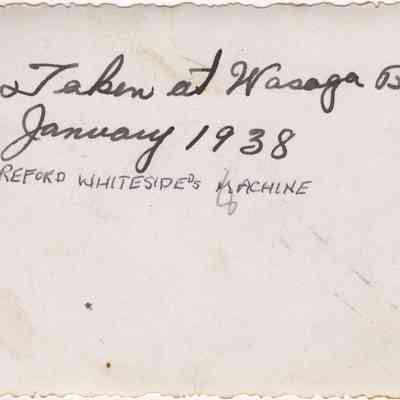 Taken at Wasaga B
January 1938
REFORD WHITESIDE'S MACHINE